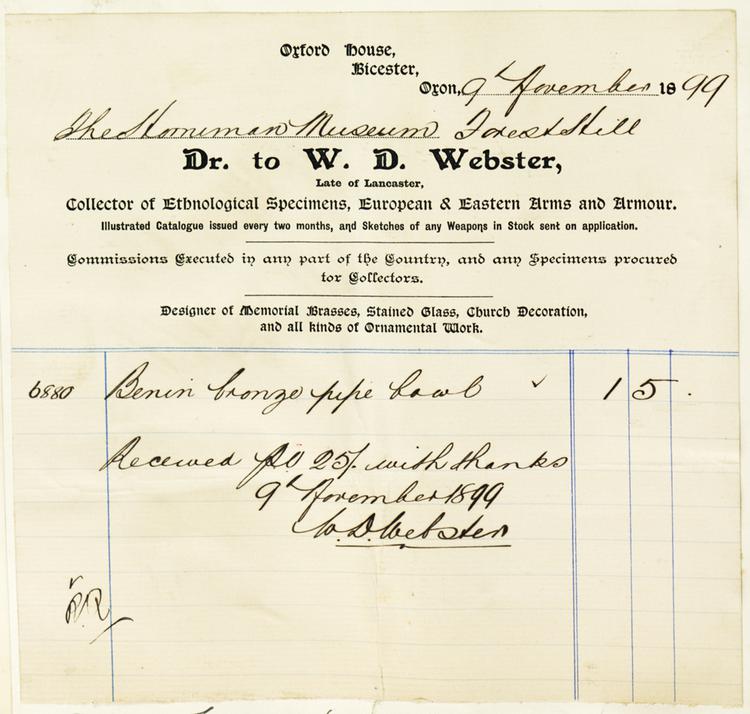 Oxford House,
Bicester,
Oxon, 9th November 1899
The Horniman Museum Forest Hill
Dr. to W. D. Webster,
Late of Lancaster,
Collector of Ethnological Specimens, European & Eastern Arms and Armour.
Illustrated Catalogue issued every two months, and Sketches of any Weapons in Stock sent on application.
Commissions Executed in any part of the Country, and any Specimens procured
for Collectors.
Designer of Memorial Brasses, Stained Glass, Church Decoration,
and all kinds of Ornamental Work.
6880 Benin bronze pipe bowl ✓ 1 5 .
Received P.O 25/. with thanks
9th November 1899
W. D. Webster